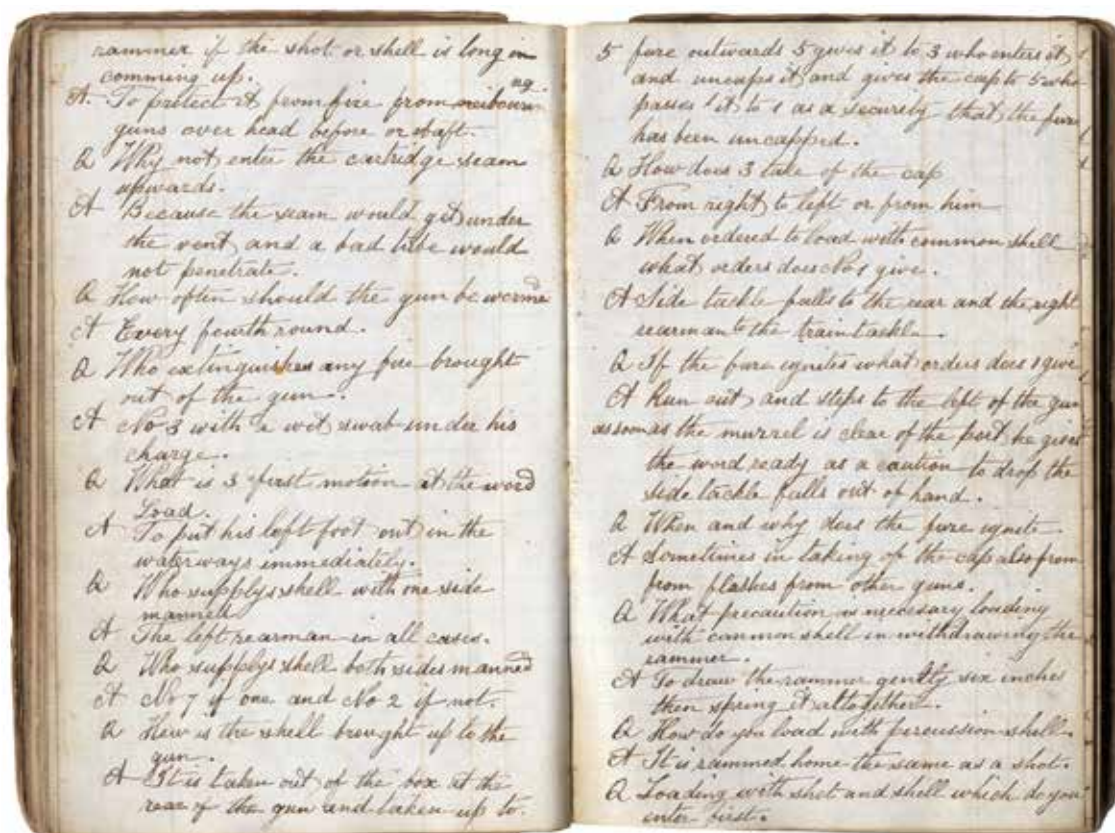 rammer if the shot or shell is long in
comming up.
A. To protect it from fire from neibouring
guns over head before or abaft.
Q Why not enter the cartridge seam
upwards.
A Because the seam would get under
the vent and a bad tube would
not penetrate.
Q How often should the gun be wormed
A Every fourth round.
Q Who extinguishes any fire brought
out of the gun.
A No 3 with a wet swab under his
charge.
Q What is 3 first motion at the word
Load.
A To put his left foot out in the
waterways immediately.
Q Who supplys shell with one side
manned
A The left rearman in all cases.
Q Who supplys shell both sides manned
A No 7 if one and No 2 if not.
Q How is the shell brought up to the
gun.
A It is taken out of the box at the
rear of the gun and taken up to
5 fuze outwards 5 gives it to 3 who enters it
and uncapes it and gives the cap to 5 who
passes it to 1 as a securely that the fuze
has been uncapped.
Q How does 3 take of the cap
A From right to left or from him
Q When ordered to load with common shell
what orders does No 1 give.
A Side tackle falls to the rear and the right
rearman to the train tackle.
Q If the fuze ignites what orders does 1 give
A Run out and steps to the left of the gun
as soon as the muzzel is clear of the port he gives
the word ready as a caution to drop the
side tackle falls out of hand.
Q When and why does the fuze ignite.
A Sometimes in taking of the cap also from
from flashes from other guns.
Q What precaution is necesary loading
with common shell in withdrawing the
rammer.
A To draw the rammer gently six inches
then spring it altogether.
Q How do you load with percussion shell.
A It is rammed home the same as a shot.
Q Loading with shot and shell which do you
enter first.